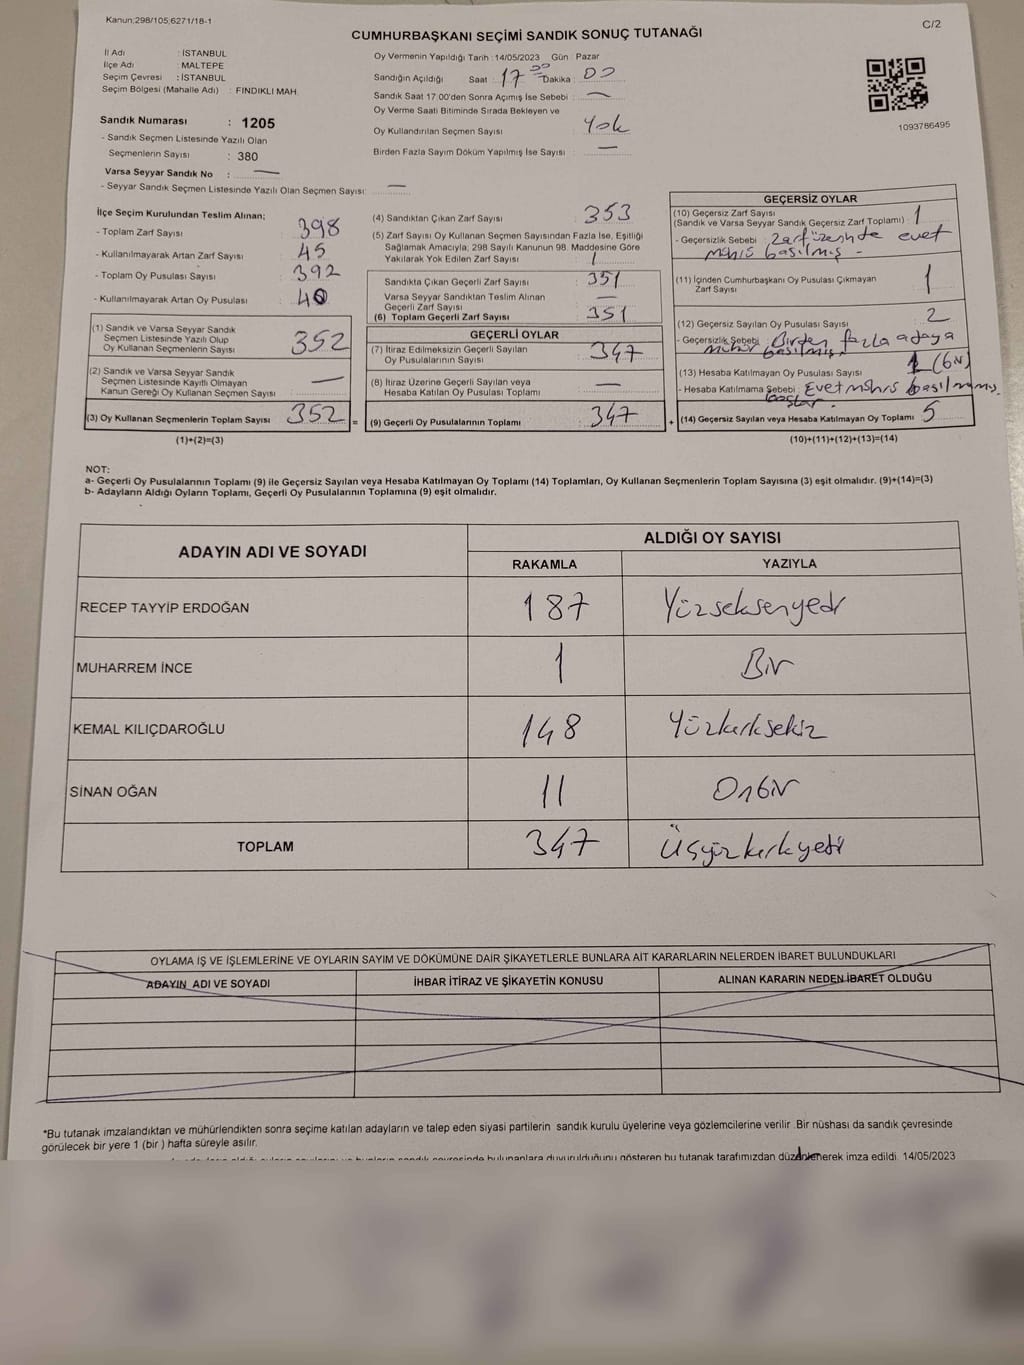 Kanun;298/105;6271/18-1
C/2
CUMHURBAŞKANI SEÇİMİ SANDIK SONUÇ TUTANAĞI
İl Adı : İSTANBUL
İlçe Adı : MALTEPE
Seçim Çevresi : İSTANBUL
Seçim Bölgesi (Mahalle Adı) : FINDIKLI MAH.
Sandık Numarası : 1205
- Sandık Seçmen Listesinde Yazılı Olan
Seçmenlerin Sayısı : 380
Varsa Seyyar Sandık No : —
- Seyyar Sandık Seçmen Listesinde Yazılı Olan Seçmen Sayısı: —
Oy Vermenin Yapıldığı Tarih : 14/05/2023 Gün : Pazar
Sandığın Açıldığı Saat : 17 00 Dakika : 00
Sandık Saat 17:00'den Sonra Açımış İse Sebebi : —
Oy Verme Saati Bitiminde Sırada Bekleyen ve
Oy Kullandırılan Seçmen Sayısı : Yok
Birden Fazla Sayım Döküm Yapılmış İse Sayısı : —
1093766495
İlçe Seçim Kurulundan Teslim Alınan;
- Toplam Zarf Sayısı : 398
- Kullanılmayarak Artan Zarf Sayısı : 45
- Toplam Oy Pusulası Sayısı : 392
- Kullanılmayarak Artan Oy Pusulası : 40
(1) Sandık ve Varsa Seyyar Sandık
Seçmen Listesinde Yazılı Olup
Oy Kullanan Seçmenlerin Sayısı : 352
(2) Sandık ve Varsa Seyyar Sandık
Seçmen Listesinde Kayıtlı Olmayan
Kanun Gereği Oy Kullanan Seçmen Sayısı : —
(3) Oy Kullanan Seçmenlerin Toplam Sayısı : 352
(1)+(2)=(3)
(4) Sandıktan Çıkan Zarf Sayısı : 353
(5) Zarf Sayısı Oy Kullanan Seçmen Sayısından Fazla İse, Eşitliği
Sağlamak Amacıyla, 298 Sayılı Kanunun 98. Maddesine Göre
Yakılarak Yok Edilen Zarf Sayısı : 1
Sandıkta Çıkan Geçerli Zarf Sayısı : 351
Varsa Seyyar Sandıktan Teslim Alınan
Geçerli Zarf Sayısı : —
(6) Toplam Geçerli Zarf Sayısı : 351
GEÇERLİ OYLAR
(7) İtiraz Edilmeksizin Geçerli Sayılan
Oy Pusulalarının Sayısı : 347
(8) İtiraz Üzerine Geçerli Sayılan veya
Hesaba Katılan Oy Pusulası Toplamı : —
= (9) Geçerli Oy Pusulalarının Toplamı : 347
GEÇERSİZ OYLAR
(10) Geçersiz Zarf Sayısı
(Sandık ve Varsa Seyyar Sandık Geçersiz Zarf Toplamı) : 1
- Geçersizlik Sebebi : Zarf üzerinde evet
mührü basılmış -
(11) İçinden Cumhurbaşkanı Oy Pusulası Çıkmayan
Zarf Sayısı : 1
(12) Geçersiz Sayılan Oy Pusulası Sayısı : 2
- Geçersizlik Sebebi : Birden fazla adaya
mühür basılmış
(13) Hesaba Katılmayan Oy Pusulası Sayısı : 1
- Hesaba Katılmama Sebebi : Evet mührü basılmamış.
+ (14) Geçersiz Sayılan veya Hesaba Katılmayan Oy Toplamı : 5
(10)+(11)+(12)+(13)=(14)
NOT:
a- Geçerli Oy Pusulalarının Toplamı (9) ile Geçersiz Sayılan veya Hesaba Katılmayan Oy Toplamı (14) Toplamları, Oy Kullanan Seçmenlerin Toplam Sayısına (3) eşit olmalıdır. (9)+(14)=(3)
b- Adayların Aldığı Oyların Toplamı, Geçerli Oy Pusulalarının Toplamına (9) eşit olmalıdır.
ADAYIN ADI VE SOYADI
ALDIĞI OY SAYISI
RAKAMLA YAZIYLA
RECEP TAYYİP ERDOĞAN 187 Yüzseksenyedi
MUHARREM İNCE 1 Bir
KEMAL KILIÇDAROĞLU 148 Yüzkırksekiz
SİNAN OĞAN 11 Onbir
TOPLAM 347 Üçyüzkırkyedi
OYLAMA İŞ VE İŞLEMLERİNE VE OYLARIN SAYIM VE DÖKÜMÜNE DAİR ŞİKAYETLERLE BUNLARA AİT KARARLARIN NELERDEN İBARET BULUNDUKLARI
ADAYIN ADI VE SOYADI İHBAR İTİRAZ VE ŞİKAYETİN KONUSU ALINAN KARARIN NEDEN İBARET OLDUĞU
*Bu tutanak imzalandıktan ve mühürlendikten sonra seçime katılan adayların ve talep eden siyasi partilerin sandık kurulu üyelerine veya gözlemcilerine verilir .Bir nüshası da sandık çevresinde
görülecek bir yere 1 (bir ) hafta süreyle asılır.
bulunanlara duyurulduğunu gösteren bu tutanak tarafımızdan düzenlenerek imza edildi. 14/05/2023